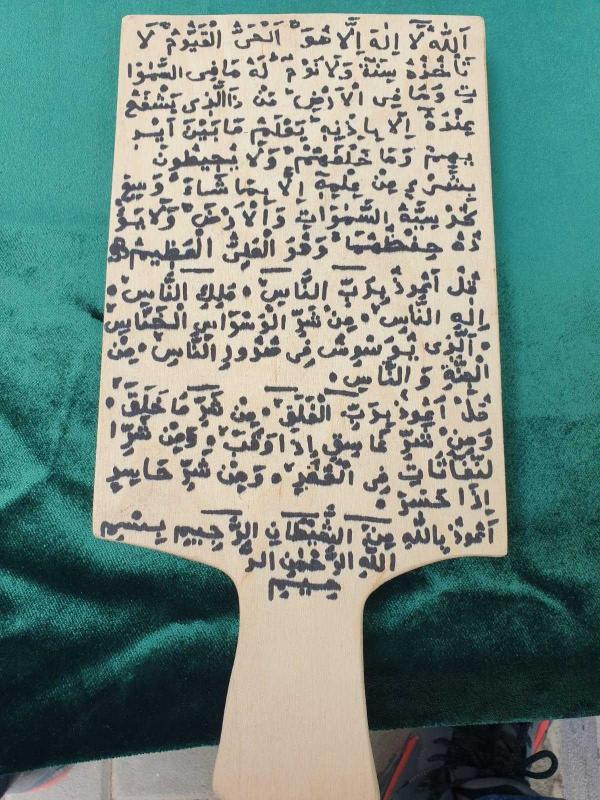 اَللّٰهُ لَآ اِلٰهَ اِلَّا هُوَ ۚ اَلْحَىُّ الْقَيُّوْمُ ۚ لَا
تَاْخُذُهٗ سِنَةٌ وَّلَا نَوْمٌ ۗ لَهٗ مَا فِى السَّمٰوَا
تِ وَمَا فِى الْاَرْضِ ۗ مَنْ ذَاالَّذِى يَشْفَعُ
عِنْدَهٗٓ اِلَّا بِاِذْنِهٖ ۗ يَعْلَمُ مَا بَيْنَ اَيْدِ
يْهِمْ وَمَا خَلْفَهُمْ ۚ وَلَا يُحِيْطُوْنَ
بِشَىْءٍ مِّنْ عِلْمِهٖٓ اِلَّا بِمَا شَآءَ ۚ وَسِعَ
كُرْسِيُّهُ السَّمٰوٰاتِ وَالْاَرْضَ ۚ وَلَا يَـُٔوْ
دُهٗ حِفْظُهُمَا ۚ وَهُوَ الْعَلِىُّ الْعَظِيْمُ
قُلْ اَعُوْذُ بِرَبِّ النَّاسِ ۙ مَلِكِ النَّاسِ ۙ
اِلٰهِ النَّاسِ ۙ مِنْ شَرِّ الْوَسْوَاسِ الْخَنَّاسِ
الَّذِى يُوَسْوِسُ فِى صُدُوْرِ النَّاسِ ۙ مِنَ
الْجِنَّةِ وَ النَّاسِ
قُلْ اَعُوْذُ بِرَبِّ الْفَلَقِ ۙ مِنْ شَرِّ مَا خَلَقَ ۙ
وَمِنْ شَرِّ غَاسِقٍ اِذَا وَقَبَ ۙ وَمِنْ شَرِّ ا
لنَّفّٰثٰاتِ فِى الْعُقَدِ ۙ وَمِنْ شَرِّ حَاسِدٍ
اِذَا حَسَدَ
اَعُوْذُ بِاللّٰهِ مِنَ الشَّيْطَانِ الرَّجِيْمِ بِسْمِ
اللّٰهِ الرَّحْمٰنِ الر